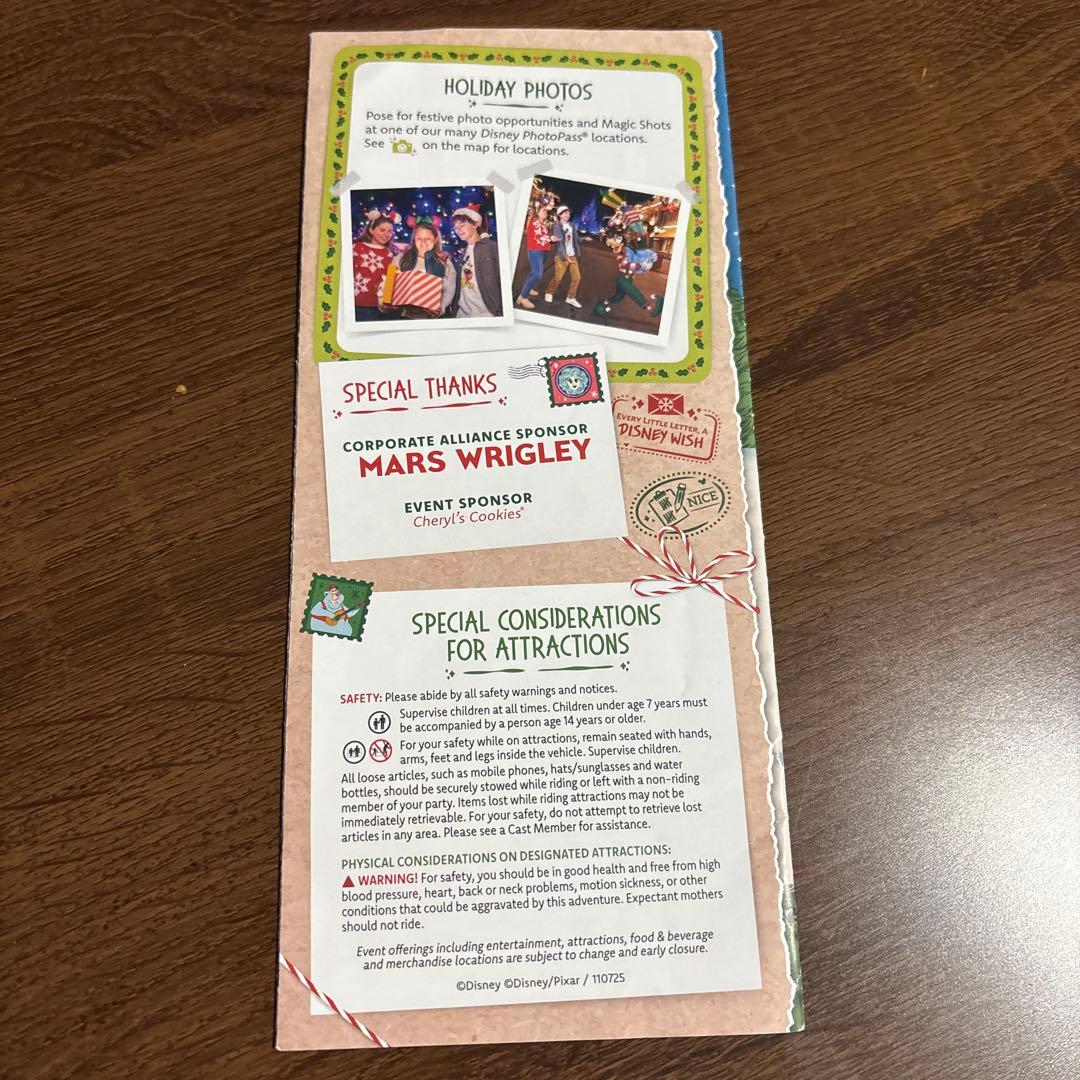 HOLIDAY PHOTOS
Pose for festive photo opportunities and Magic Shots
at one of our many Disney PhotoPass® locations.
See on the map for locations.
SPECIAL THANKS
CORPORATE ALLIANCE SPONSOR
MARS WRIGLEY
EVENT SPONSOR
Cheryl's Cookies®
EVERY LITTLE LETTER, A
DISNEY WISH
NICE
SPECIAL CONSIDERATIONS
FOR ATTRACTIONS
SAFETY: Please abide by all safety warnings and notices.
Supervise children at all times. Children under age 7 years must
be accompanied by a person age 14 years or older.
For your safety while on attractions, remain seated with hands,
arms, feet and legs inside the vehicle. Supervise children.
All loose articles, such as mobile phones, hats/sunglasses and water
bottles, should be securely stowed while riding or left with a non-riding
member of your party. Items lost while riding attractions may not be
immediately retrievable. For your safety, do not attempt to retrieve lost
articles in any area. Please see a Cast Member for assistance.
PHYSICAL CONSIDERATIONS ON DESIGNATED ATTRACTIONS:
WARNING! For safety, you should be in good health and free from high
blood pressure, heart, back or neck problems, motion sickness, or other
conditions that could be aggravated by this adventure. Expectant mothers
should not ride.
Event offerings including entertainment, attractions, food & beverage
and merchandise locations are subject to change and early closure.
©Disney ©Disney/Pixar / 110725